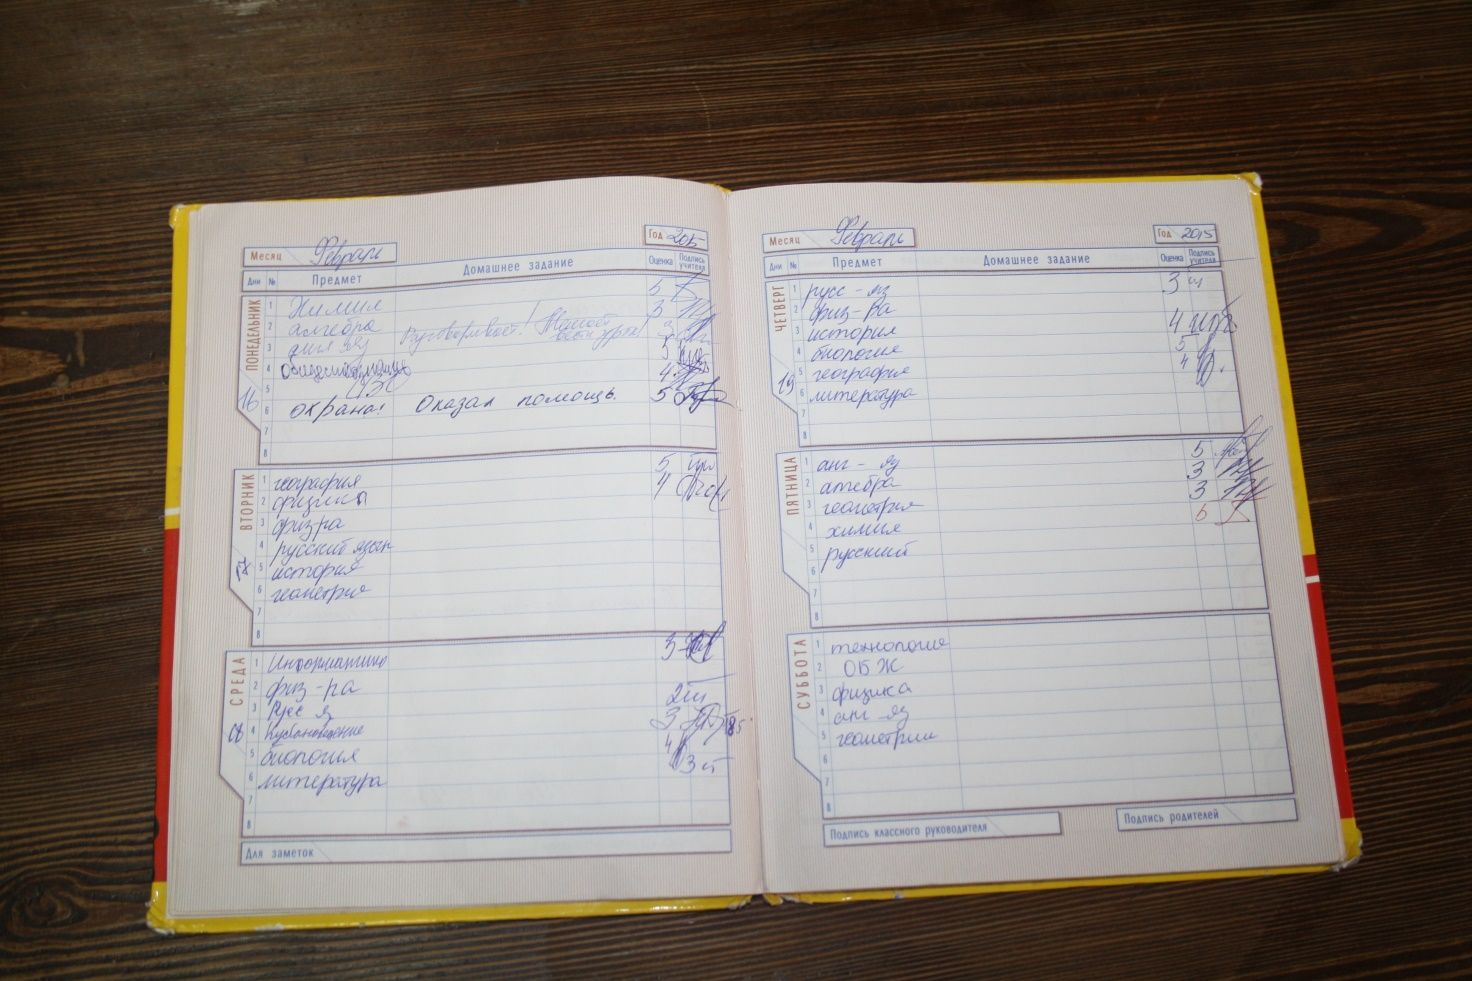 Месяц Февраль Год 2015
Дни № Предмет Домашнее задание Оценка Подпись учителя
ПОНЕДЕЛЬНИК
16
1 Химия 5
2 алгебра 3
3 анг яз Разговаривает! Мешает вести урок! 3
4 обществознание 5
5 ИЗО 4
6 охрана! Оказал помощь. 5
7
8
ВТОРНИК
17
1 география 5
2 физика 4
3 физ-ра
4 русский язык
5 история
6 геометрия
7
8
СРЕДА
18
1 Информатика 3
2 физ-ра
3 Русс яз 2
4 Кубановедение 3
5 биология 4
6 литература 3
7
8
Для заметок
Месяц Февраль Год 2015
Дни № Предмет Домашнее задание Оценка Подпись учителя
ЧЕТВЕРГ
19
1 русс - яз 3
2 физ - ра
3 история 4
4 биология 5
5 география 4
6 литература
7
8
ПЯТНИЦА
1 анг - яз 5
2 алгебра 3
3 геометрия 3
4 химия 5
5 русский
6
7
8
СУББОТА
1 технология
2 ОБЖ
3 физика
4 анг - яз
5 геометрии
6
7
8
Подпись классного руководителя
Подпись родителей